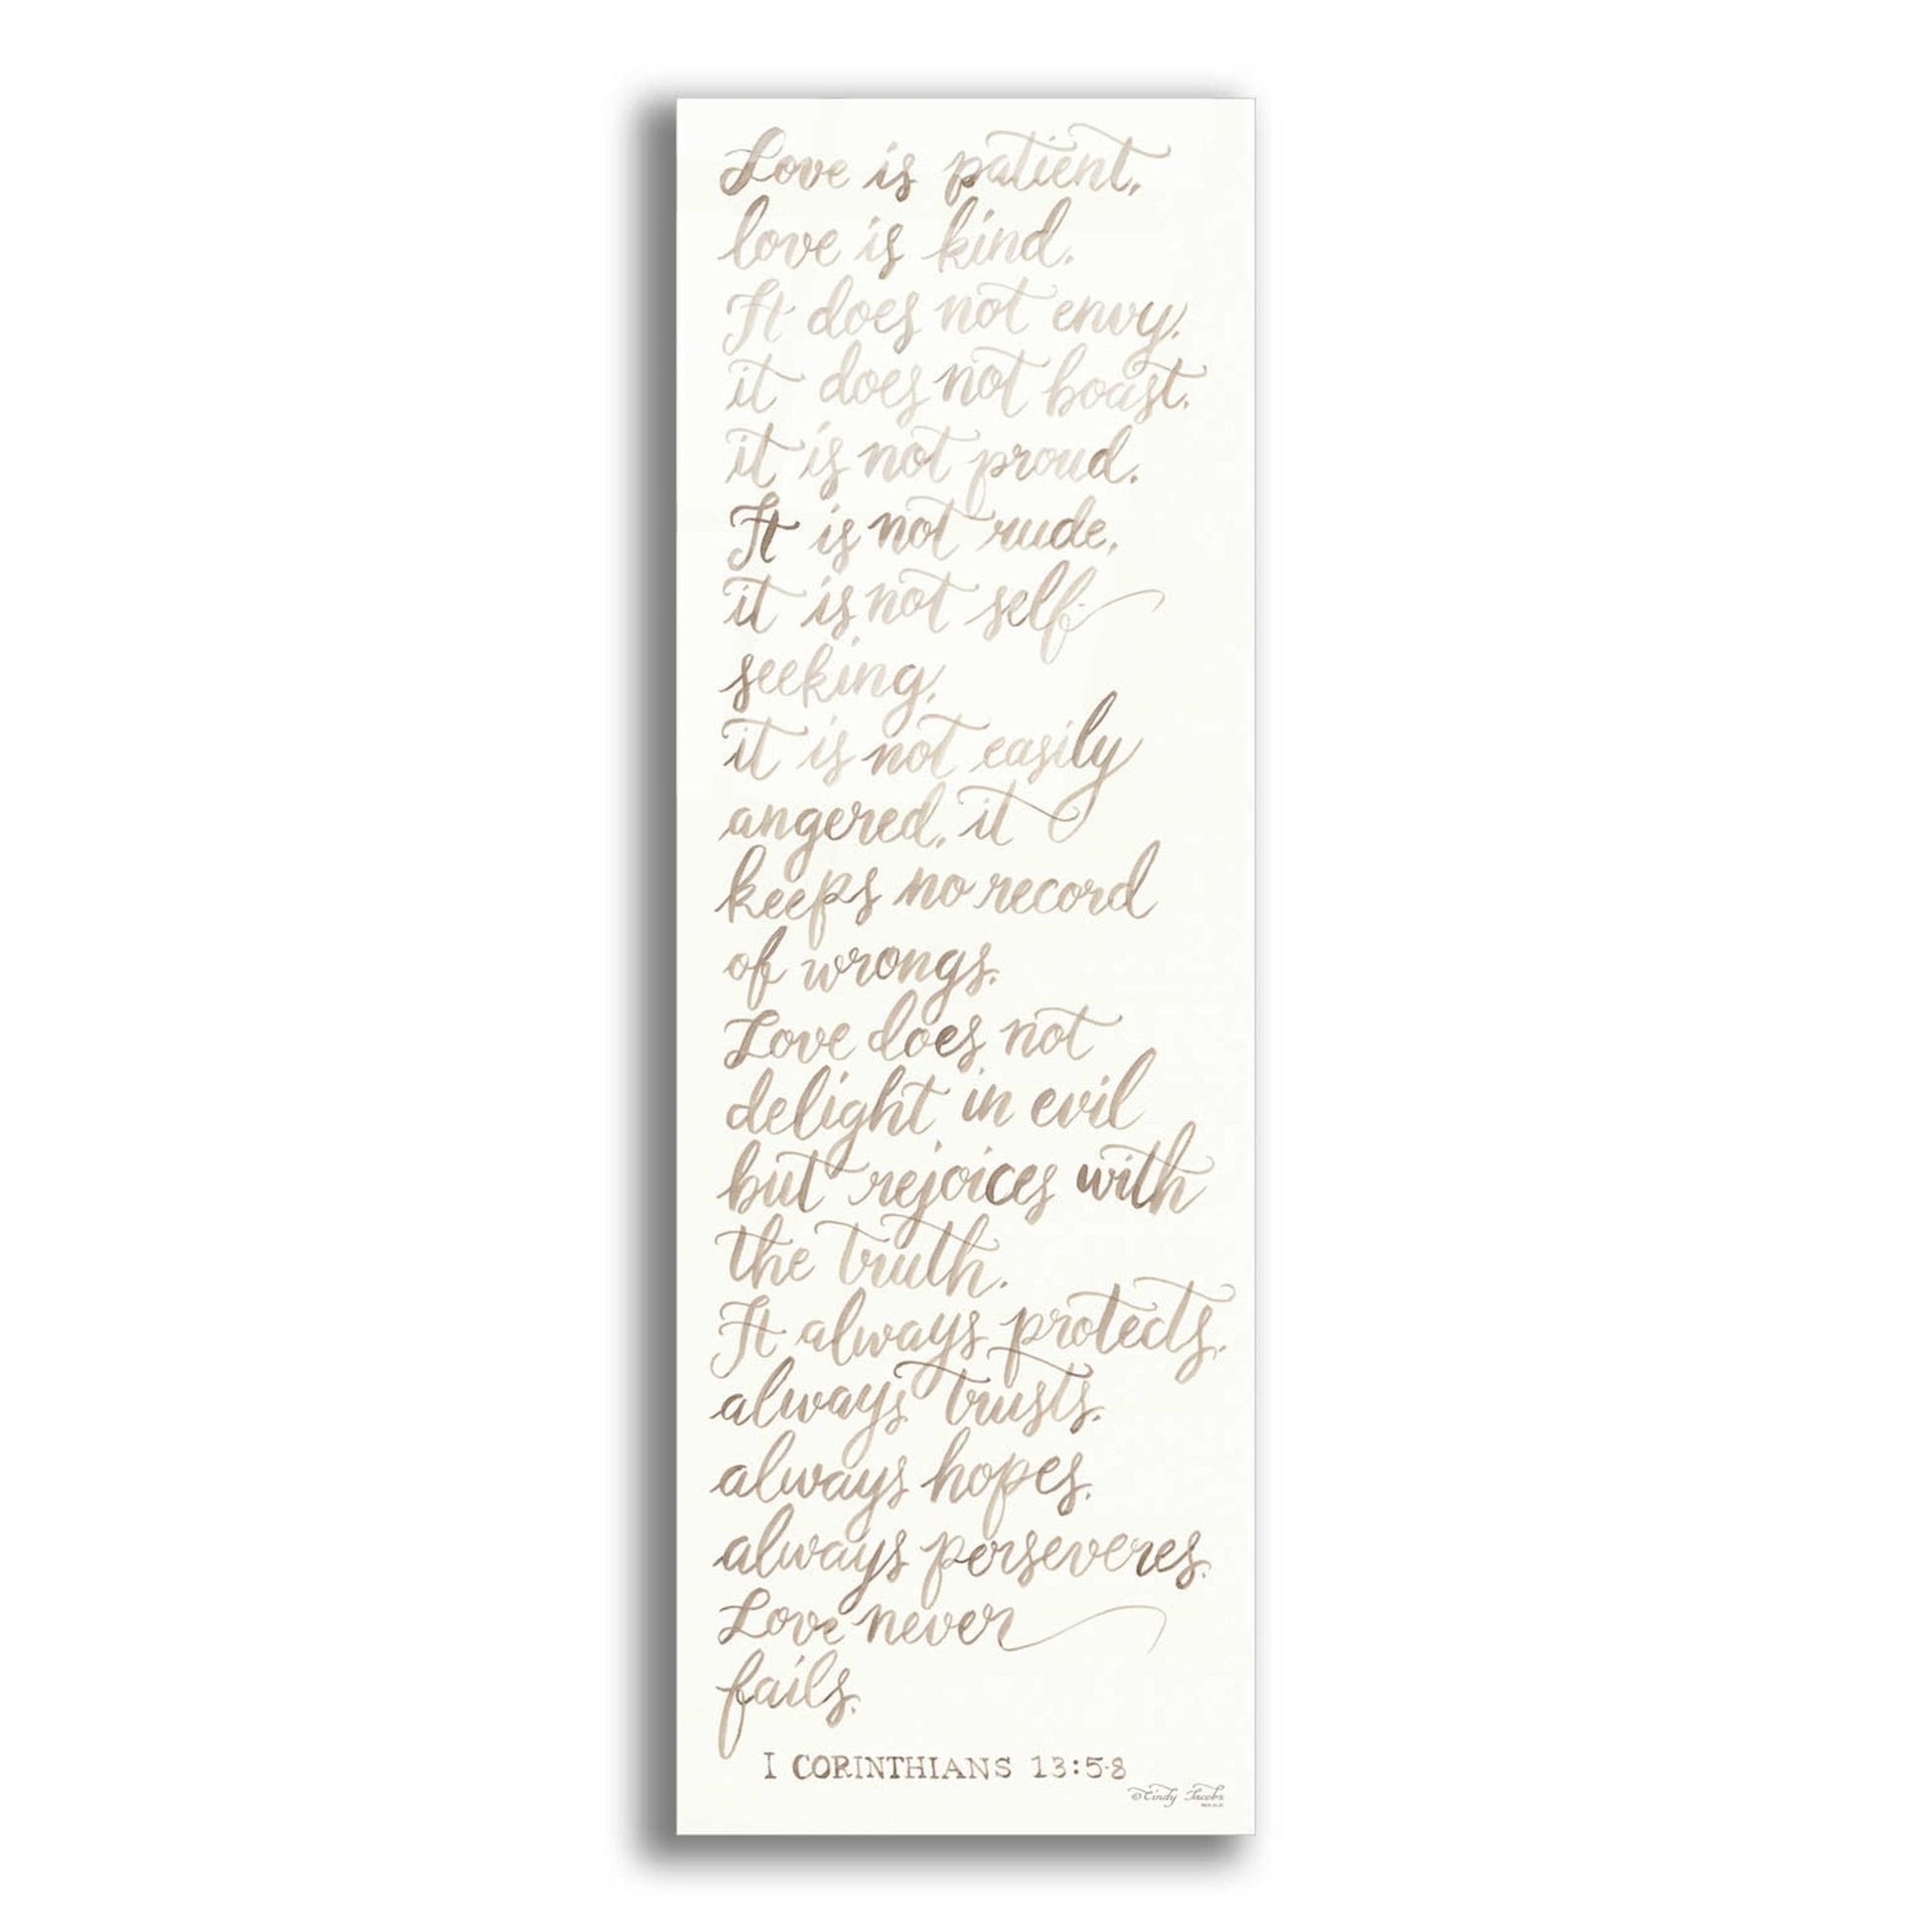 Love is patient,
love is kind.
It does not envy,
it does not boast,
it is not proud.
It is not rude,
it is not self-
seeking,
it is not easily
angered, it
keeps no record
of wrongs.
Love does not
delight in evil
but rejoices with
the truth.
It always protects,
always trusts,
always hopes,
always perseveres.
Love never
fails.
I CORINTHIANS 13:5-8
©Cindy Jacobs